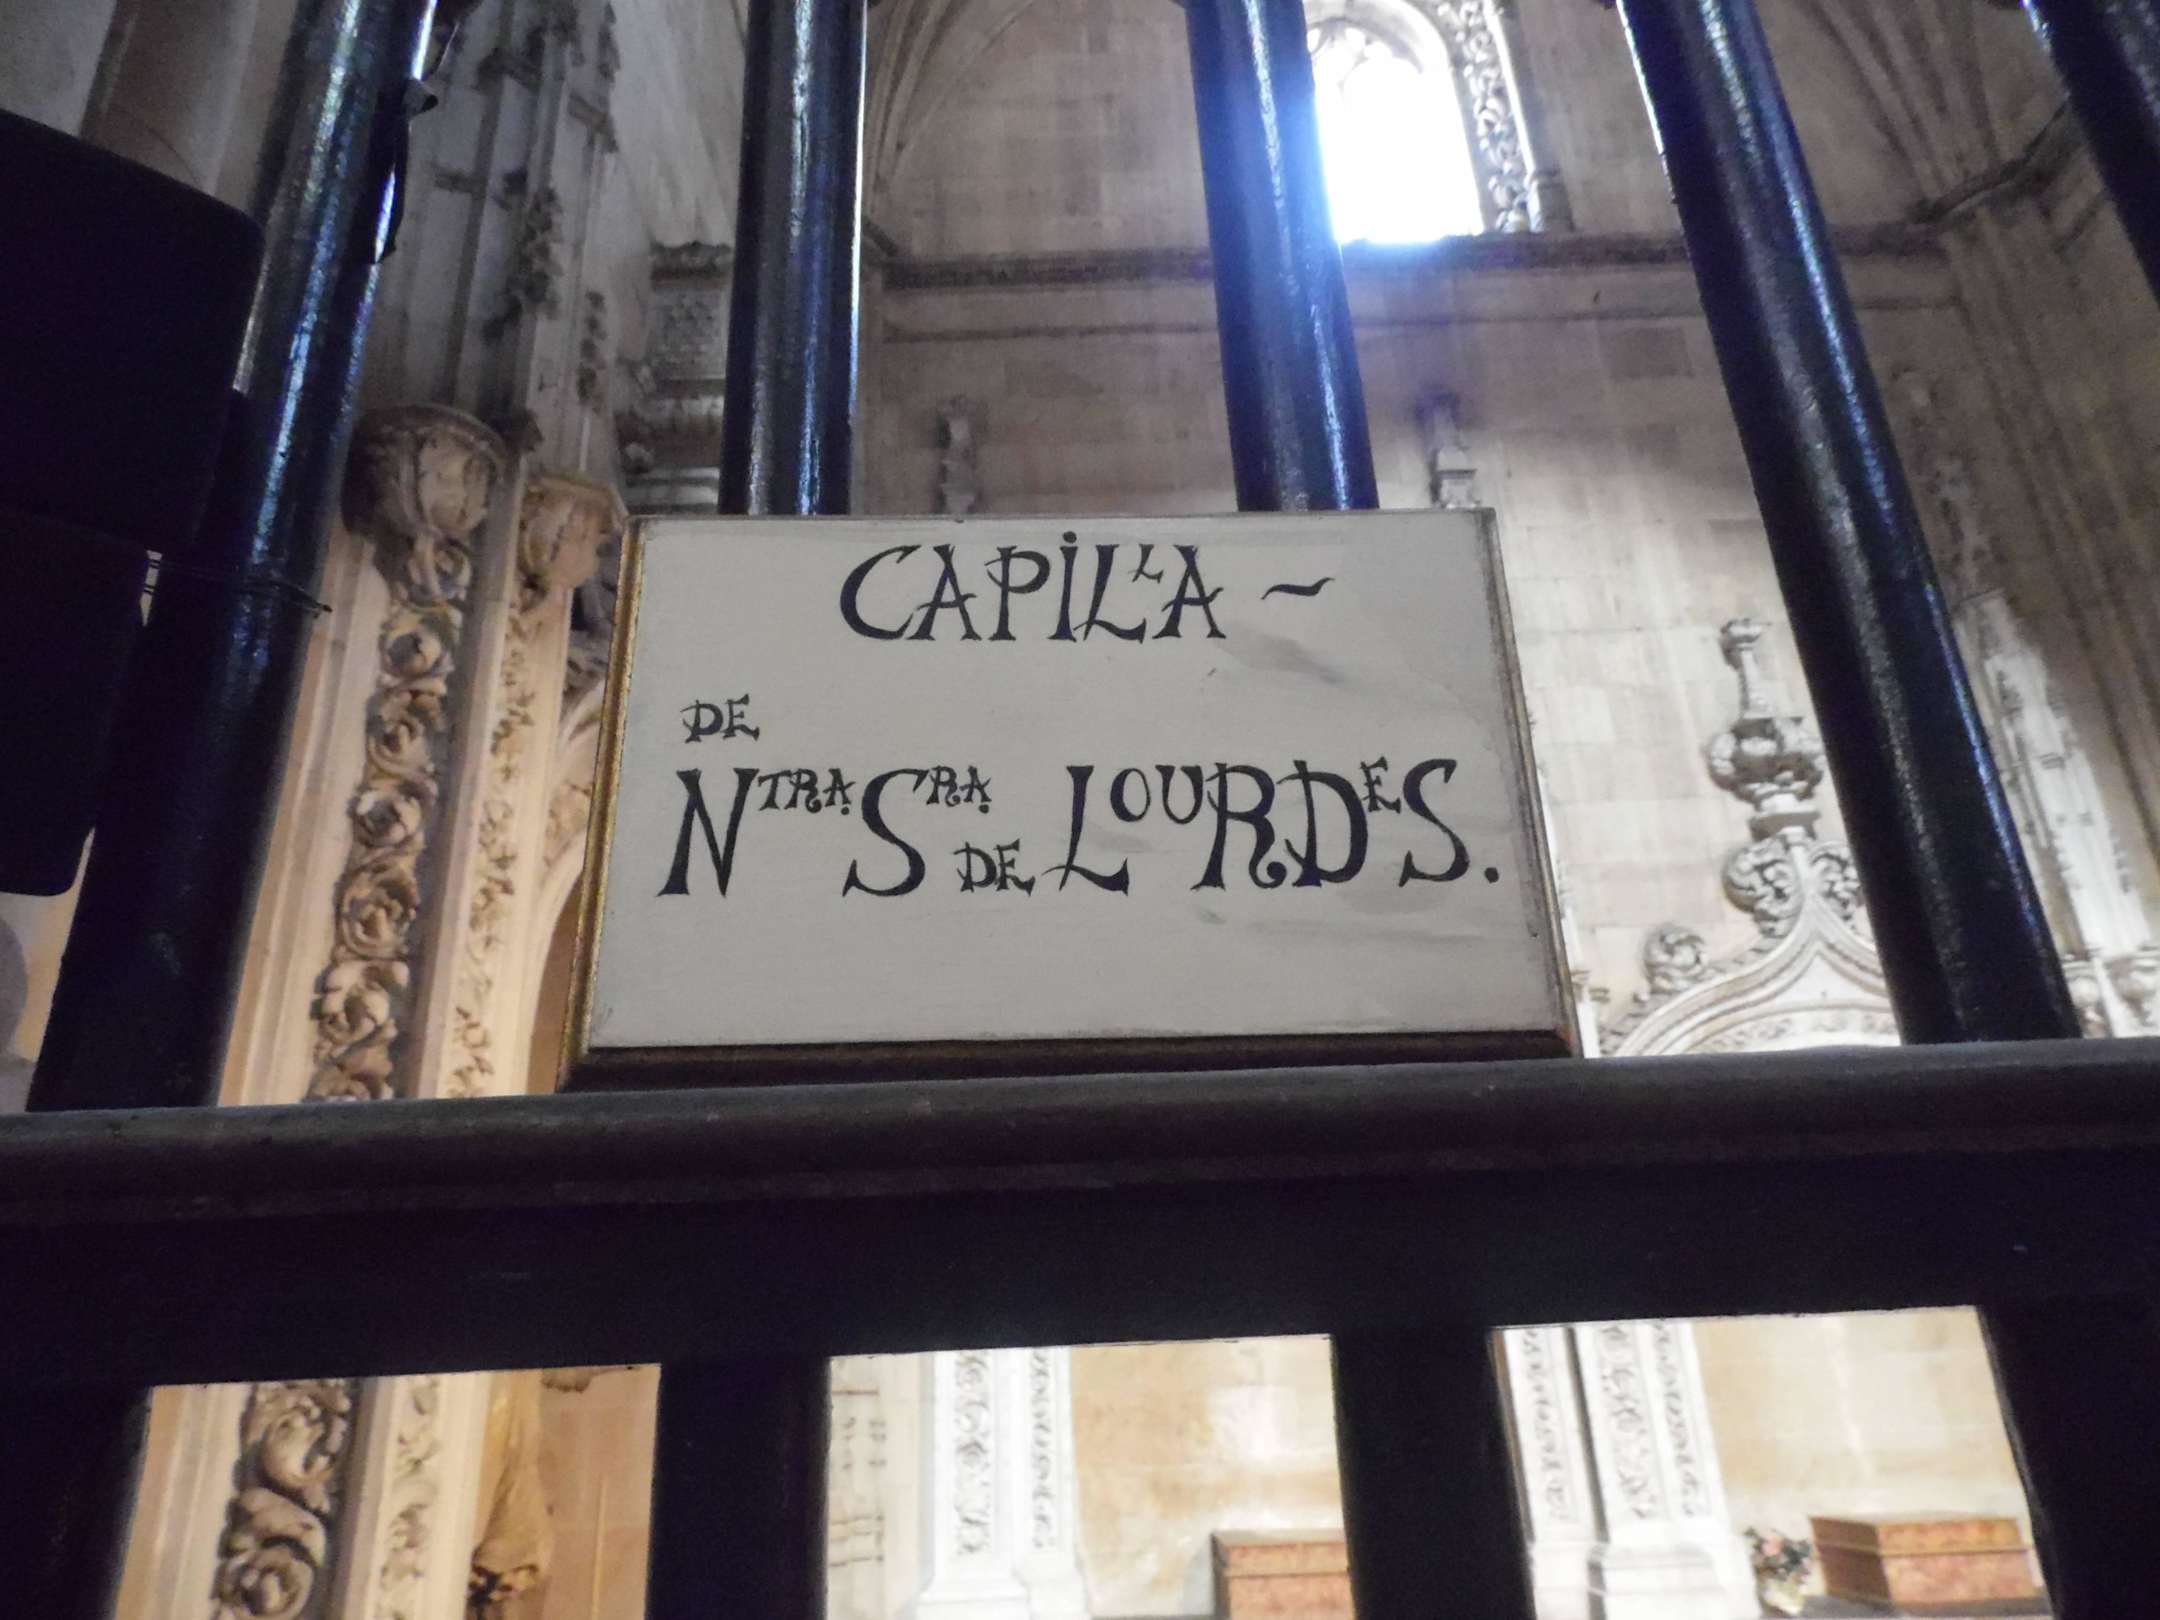 CAPILLA ~
DE
NTRA. SRA. DE LOURDES.